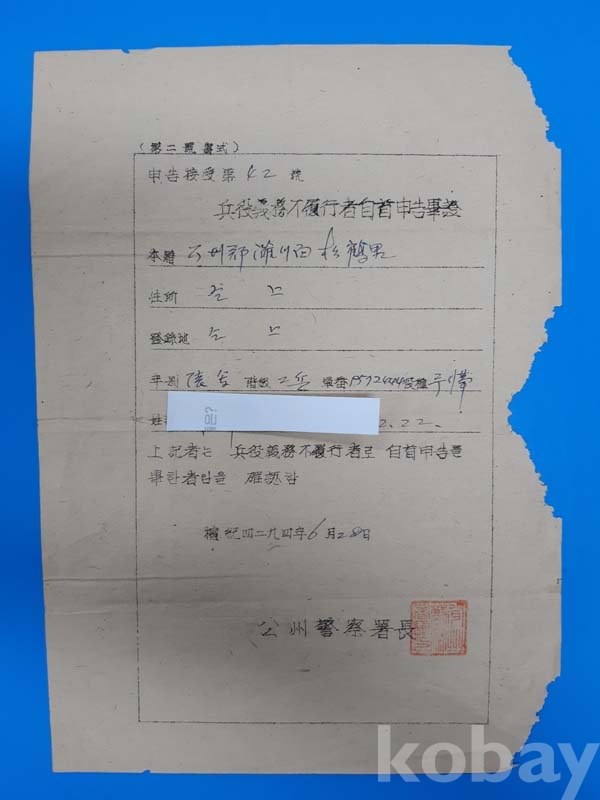 (第二號書式)
申告接受第 42 號
兵役義務不履行者自首申告畢證
本籍 公州郡 灘川面 松鶴里
住所 仝 上
登錄地 仝 上
軍別 陸軍 階級 二兵 軍番 役種
2.22.
上記者는 兵役義務不履行者로 自首申告를
畢한者임을 確認함
檀紀四二九四年 6月28日
公州警察署長
kobay